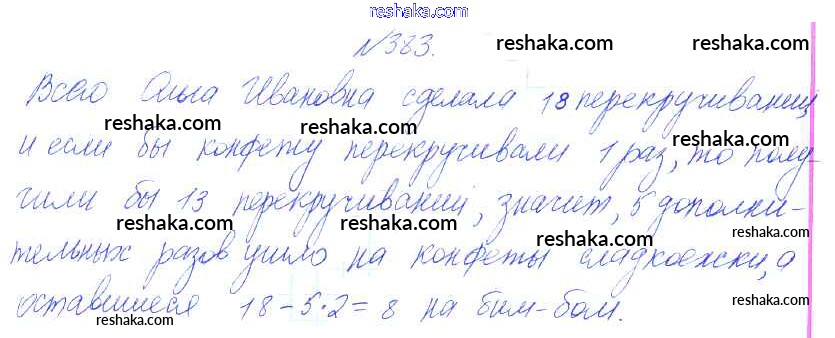 reshaka.com
№383. reshaka.com
Всего Ольга Ивановна сделала 18 перекручиваний,
reshaka.com reshaka.com reshaka.com
и если бы конфету перекручивали 1 раз, то полу-
reshaka.com
чили бы 13 перекручиваний, значит, 5 дополни-
reshaka.com reshaka.com reshaka.com
тельных разов ушло на конфеты сладкоежки, а
reshaka.com
оставшиеся 18-5·2=8 на бим-бом.
reshaka.com reshaka.com reshaka.com